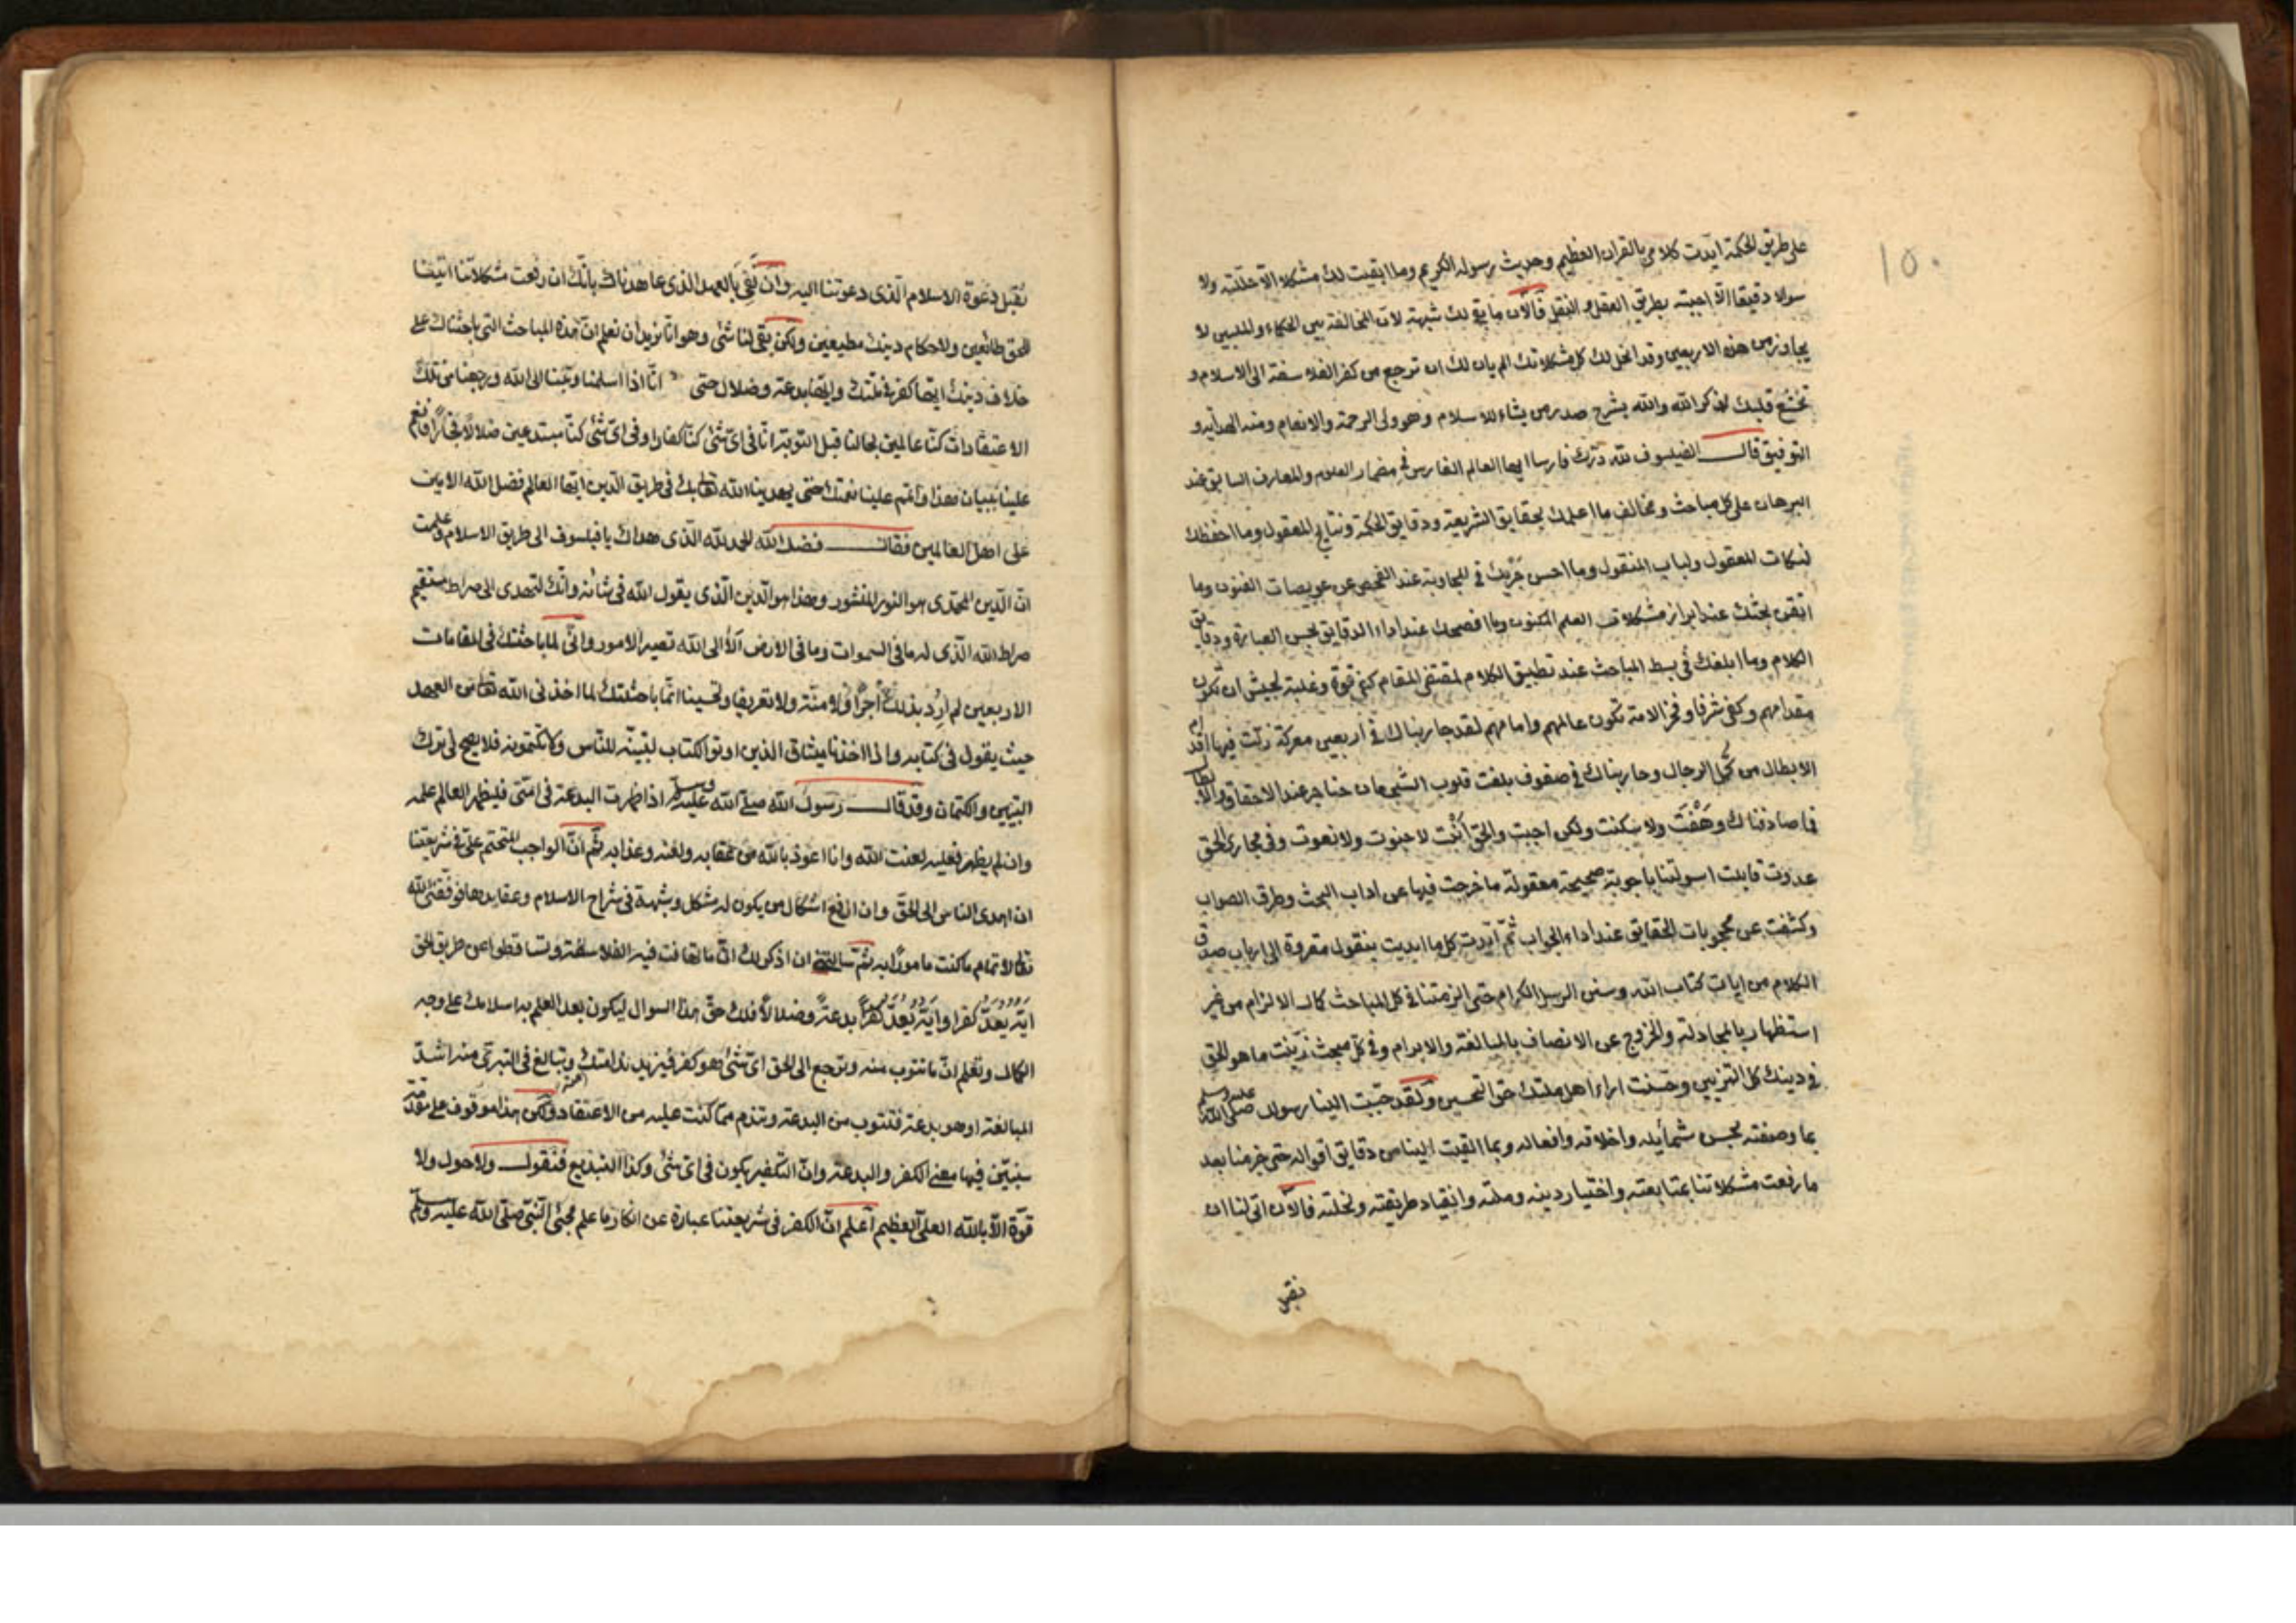 ١٥٠
على طريق الحكمة ايدت كلامى بالقران العظيم وحديث رسوله الكريم وما ابقيت لك مشكلا الّا حللته ولا
سولا دقيقا الّا اجبته بطريق العقل و النقل فالآن ما بقى لك شبهة لان المخالفة بين الحكماء والمليين لا
يجاوز من هذه الاربعين وقد انحل لك كل مشكلاتك الم يان لك ان ترجع من كفر الفلاسفة الى الاسلام و
تخشع قلبك لذكر الله والله يشرح صدر من يشاء للاسلام وهو ولى الرحمة والانعام ومنه الهداية و
التوفيق قال الفيلسوف لله درّك فارسا ايها العالم الفارس فى مضمار العلوم والمعارف السابق عند
البرهان على كل مباحث ومخالف ما اعلمك بحقايق الشريعة ودقايق الحكمة ونتايج المعقول وما احفظك
لنكات المعقول ولباب المنقول وما احسن جَرْيك فى المجاوبة عند الفحص عن عويصات الفنون وما
اتقن بحثك عند ابراز مشكلات العلم المكنون وما افصحك عند اداء الدقايق بحسن العبارة ودقايق
الكلام وما ابلغك فى بسط المباحث عند تطبيق الكلام لمقتضى المقام كم قوة وغلبة لجيش ان تكون
مقدامهم وكفى شرفا وفخرا لامة تكون عالمهم وامامهم لقد جاريناك فى اربعين معركة زلّت فيها اقدام
الابطال من كُمّل الرجال وحاربناك فى صفوف بلغت قلوب الشجعان حناجر عند الاحقاق والابطال
فما صادفناك وهَفْت ولا سكنت ولكن اجبت والحق انت لا جنوت ولا نعوت وفى مجارى الحق
عدوت قابلت اسولتنا باجوبة صحيحة معقولة ما خرجت فيها عن اداب البحث وطرق الصواب
وكشفت عن محجوبات الحقايق عند اداء الجواب ثمّ ايدت كل ما ابديت بنقول مقروة الى ارباب صدق
الكلام من ايات كتاب الله وسنن الرسل الكرام حتى الزمتنا فى كل المباحث كمال الالزام من غير
استظهار بالمجادلة والخروج عن الانصاف بالمبالغة والابرام وفى كلّ مبحث زيّنت ما هو الحق
فى دينك كل التزيين وحسّنت اراء اهل ملتك حق التحسين ولقد حبّبت الينا رسول الله صلى الله عليه وسلم
بما وصفته بحسن شمائله واخلاقه وافعاله وبما القيت الينا من دقايق اقواله حتى عزمنا بعد
ما رفعت مشكلاتنا بمتابعته واختيار دينه وملته وانقياد طريقته ونحلته فالآن اتى لنا ان
نقبل
نقبل دعوة الاسلام الذى دعوتنا اليه وان نفى بالعهد الذى عاهدناك بانّك ان رفعت مشكلاتنا اتيفنا
للحق طائعين ولاحكام دينك مطيعين ولكن بقى لنا شئ وهو انا نريد ان نعلم انّ هذه المباحث التى باحثناك على
خلاف دينك ايّها كفر فى ملّتك وايّها بدعة وضلال حتى انّا اذا اسلمنا وتبنا الى الله ورجعنا من تلك
الاعتقادات كنّا عالمين بحالنا قبل التوبة انّا فى اىّ شئ كنّا كفارا وفى اىّ شئ كنّا مبتدعين ضلالا فجّارا فانعم
علينا ببيان هذا واتمم علينا نعمتك حتى يهدينا الله تعالى بك فى طريق الدين ايّها العالم فضل الله الامين
على اهل العالمين فقال فضل الله الحمد لله الذى هداك يا فيلسوف الى طريق الاسلام وعلمت
انّ الدين المحمدى هو النور المنشور وهذا هو الدين الذى يقول الله فى شانه وانّك لتهدى الى صراط مستقيم
صراط الله الذى له ما فى السموات وما فى الارض الا الى الله تصير الامور وانّى لما باحثتك فى المقامات
الاربعين لم اُرِد بذلك اجرا ولا منّة ولا تعريفا وتحسينا انّما باحثتك لما اخذ نى الله تعالى من العهد
حيث يقول فى كتابه واذا اخذنا ميثاق الذين اوتوا الكتاب لتبيّنه للنّاس ولا تكتمونه فلا يصح لى ترك
التبيين والكتمان وقد قال رسول الله صلى الله عليه وسلم اذا ظهرت البدعة فى امّتى فليظهر العالم علمه
وان لم يظهر فعليه لعنت الله وانا اعوذ بالله من عقابه ولعنه وعذابه ثم انّ الواجب المتحتم علىّ فى شريعتنا
ان اهدى الناس الى الحقّ وان ارفع اشكال من يكون له مشكل وشبهة فى شراح الاسلام وعقايدها فوفّقنى الله
تعالى لاتمام ما كنت مامورا به ثم سالتنى ان اذكر لك انّ ما تهافت فيه الفلاسفة وتساقطوا عن طريق الحق
ايّه يُعَدّ كفرا وايّه يُعَدّ بدعةً وضلالا فلك حقّ هذا السوال ليكون بعد العلم به اسلامك على وجه
الكمال وتعلم انّ ما تتوب منه وترجع الى الحق اىّ شئ هو كفر فيزيد ندامتك وتبالغ فى التبرّى منه اشدّ
المبالغة او هو بدعة فتتوب من البدعة وتندم ممّا كنت عليه من الاعتقاد ولكن هذا موقوف على مقدّمة
سنبيّن فيها معنى الكفر والبدعة وانّ التكفير يكون فى اىّ شئ وكذا التبديع فنقول ولا حول ولا
قوة الّا بالله العلىّ العظيم اعلم انّ الكفر فى شريعتنا عبارة عن انكار ما علم مجئ النّبىّ صلى الله عليه وسلم